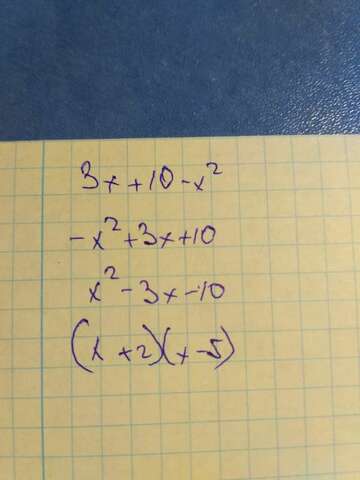 3x+10-x²
-x²+3x+10
x²-3x-10
(x+2)(x-5)